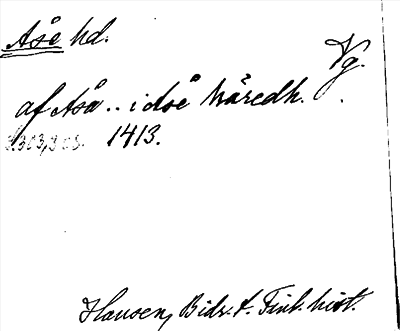 Åse hd.
Vg.
af Åsa .. i dse häredh.
1413.
Hausen, Bidr. t. Finl. hist.